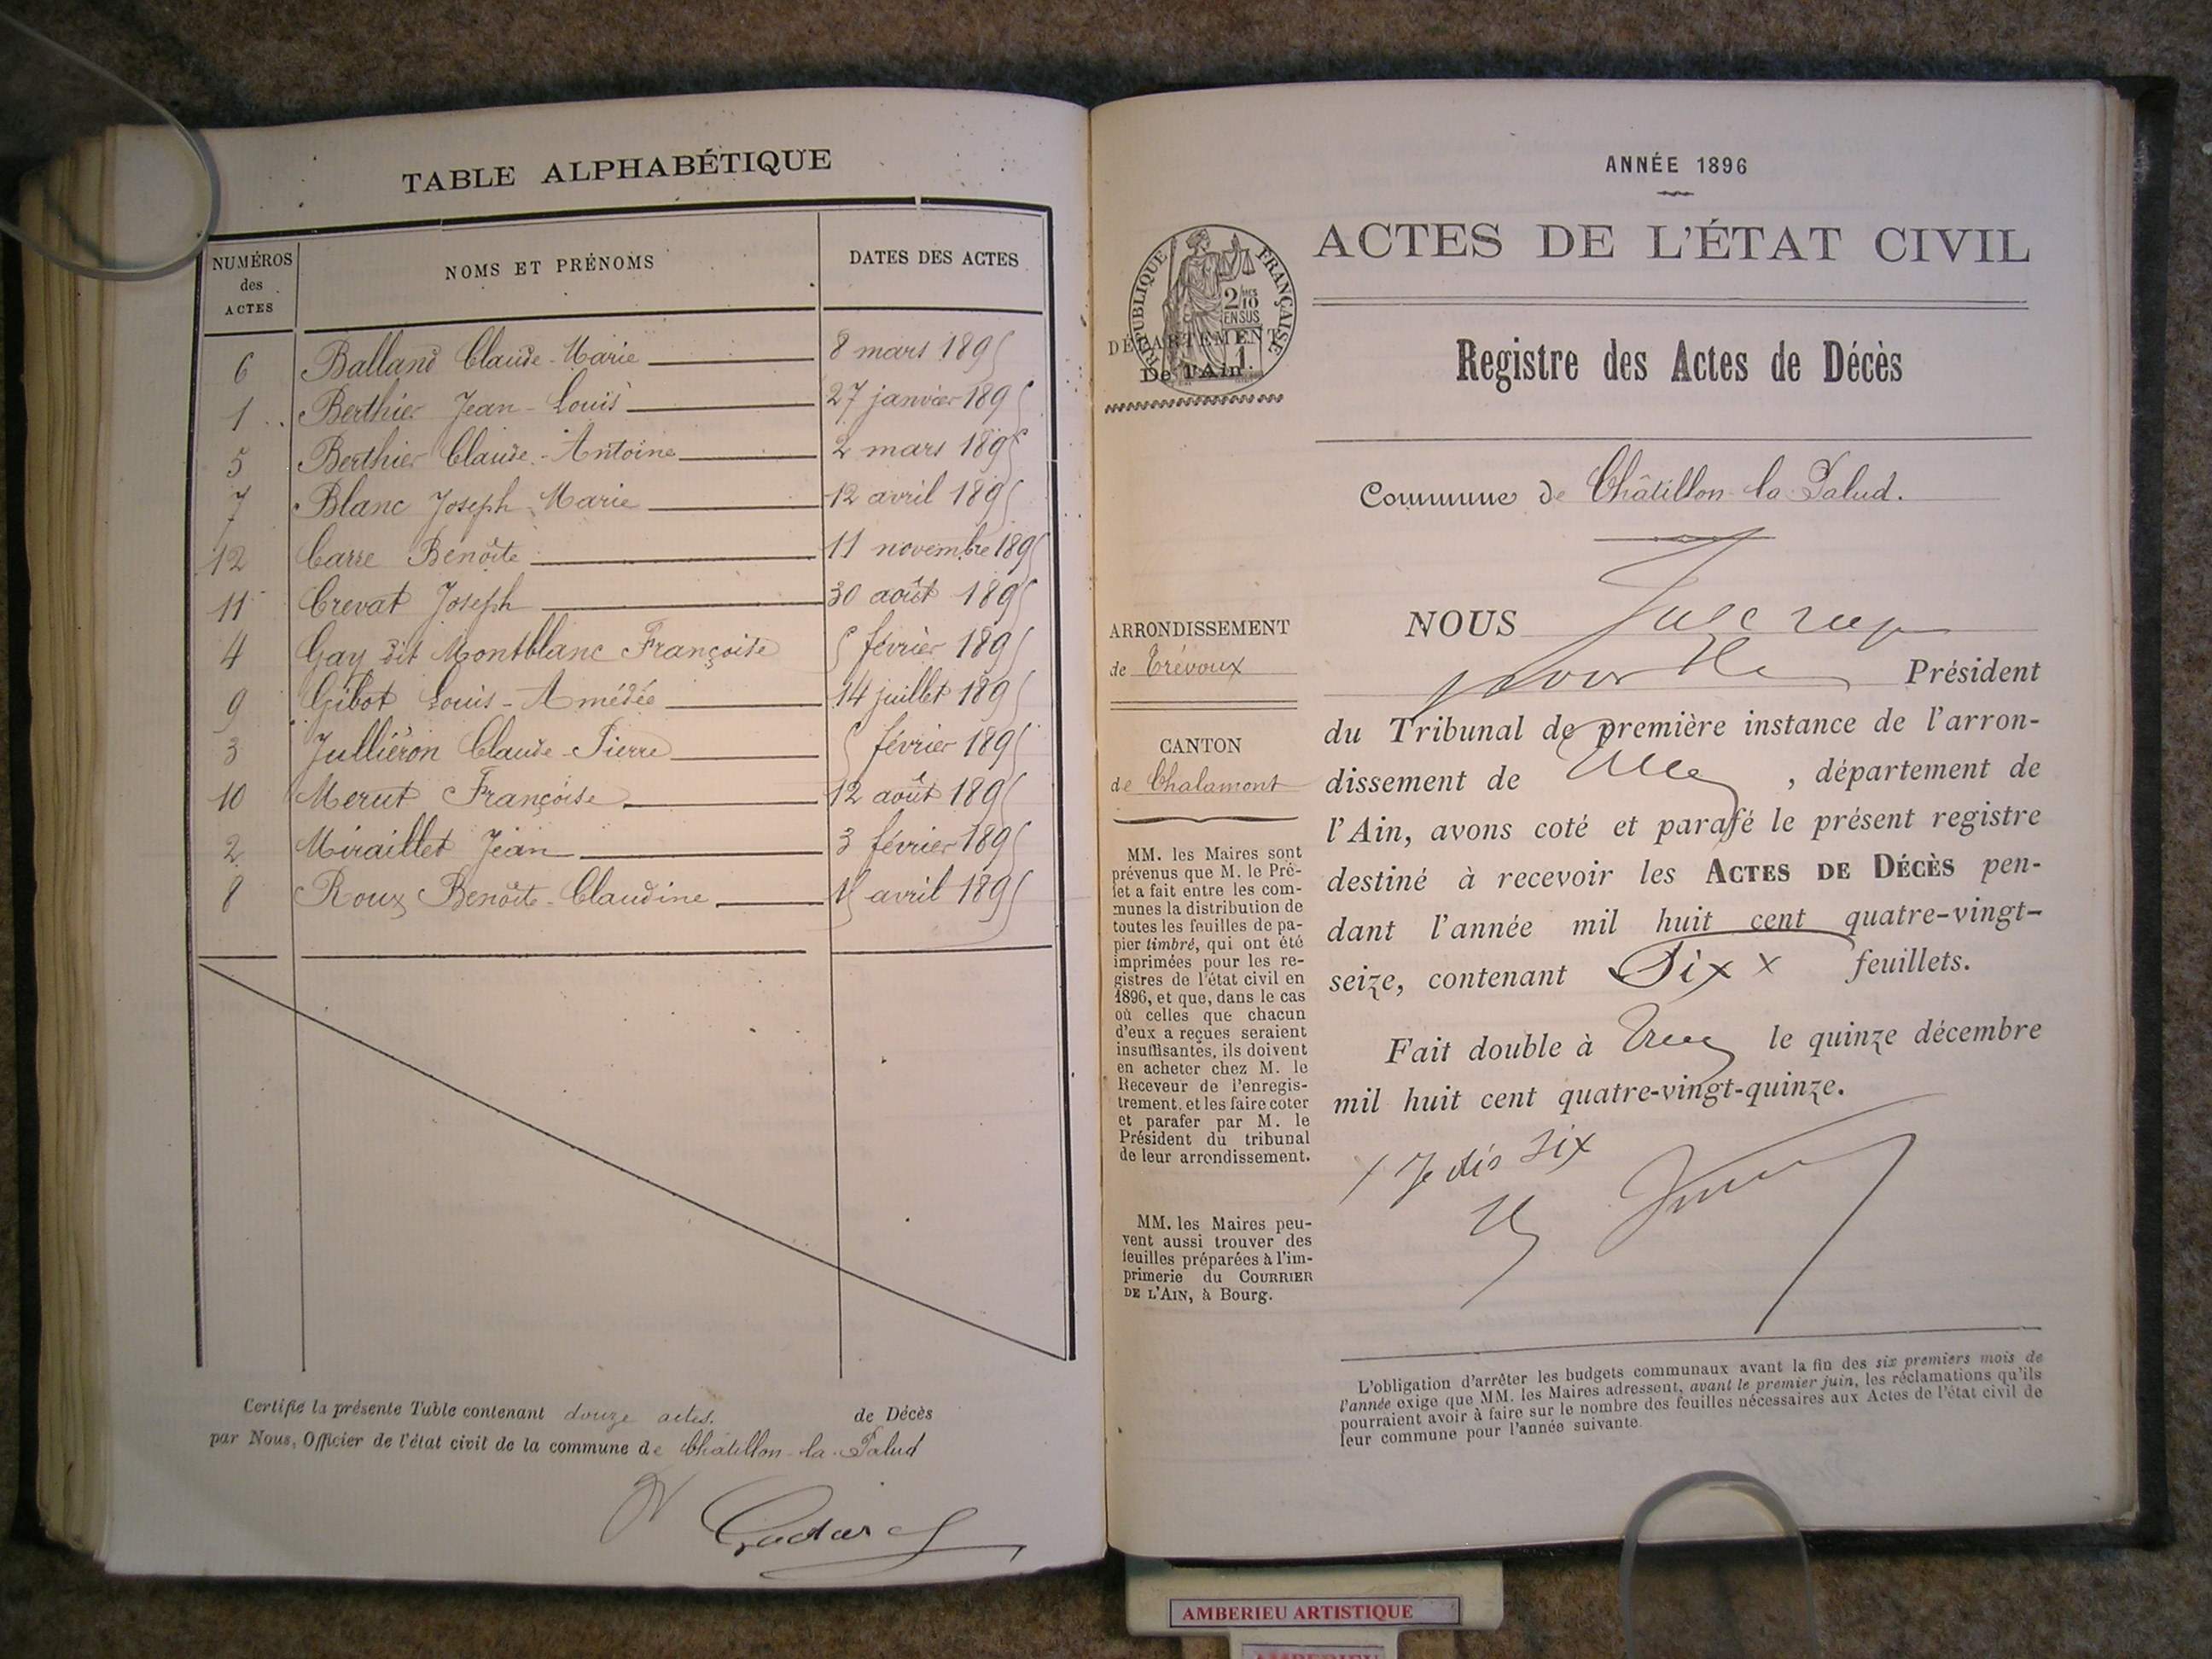 TABLE ALPHABÉTIQUE
NUMÉROS des ACTES
NOMS ET PRÉNOMS
DATES DES ACTES
6 Balland Claude-Marie 8 mars 1895
1 Berthier Jean-Louis 27 janvier 1895
5 Berthier Claude-Antoine 2 mars 1895
7 Blanc Joseph Marie 12 avril 1895
12 Carre Benoîte 11 novembre 1895
11 Crevat Joseph 30 août 1895
4 Gay dit Montblanc Françoise 5 février 1895
9 Gibot Louis-Amédée 14 juillet 1895
3 Julliéron Claude-Pierre 5 février 1895
10 Merut Françoise 12 août 1895
2 Miraillet Jean 3 février 1895
8 Roux Benoîte-Claudine 15 avril 1895
Certifié la présente Table contenant douze actes. de Décès
par Nous, Officier de l'état civil de la commune de Châtillon-la-Palud
ANNÉE 1896
ACTES DE L'ÉTAT CIVIL
RÉPUBLIQUE FRANÇAISE
2/10 EN SUS
DÉPARTEMENT
De l'Ain.
Registre des Actes de Décès
Commune de Châtillon-la-Palud.
ARRONDISSEMENT
de Trévoux
CANTON
de Chalamont
MM. les Maires sont
prévenus que M. le Pré-
fet a fait entre les com-
munes la distribution de
toutes les feuilles de pa-
pier timbré, qui ont été
imprimées pour les re-
gistres de l'état civil en
1896, et que, dans le cas
où celles que chacun
d'eux a reçues seraient
insuffisantes, ils doivent
en acheter chez M. le
Receveur de l'enregis-
trement, et les faire coter
et parafer par M. le
Président du tribunal
de leur arrondissement.
MM. les Maires peu-
vent aussi trouver des
feuilles préparées à l'im-
primerie du COURRIER
DE L'AIN, à Bourg.
NOUS
Président
du Tribunal de première instance de l'arron-
dissement de , département de
l'Ain, avons coté et parafé le présent registre
destiné à recevoir les ACTES DE DÉCÈS pen-
dant l'année mil huit cent quatre-vingt-
seize, contenant Six x feuillets.
Fait double à le quinze décembre
mil huit cent quatre-vingt-quinze.
Je dis six
L'obligation d'arrêter les budgets communaux avant la fin des six premiers mois de
l'année exige que MM. les Maires adressent, avant le premier juin, les réclamations qu'ils
pourraient avoir à faire sur le nombre des feuilles nécessaires aux Actes de l'état civil de
leur commune pour l'année suivante.
AMBERIEU ARTISTIQUE
AMBERIEU